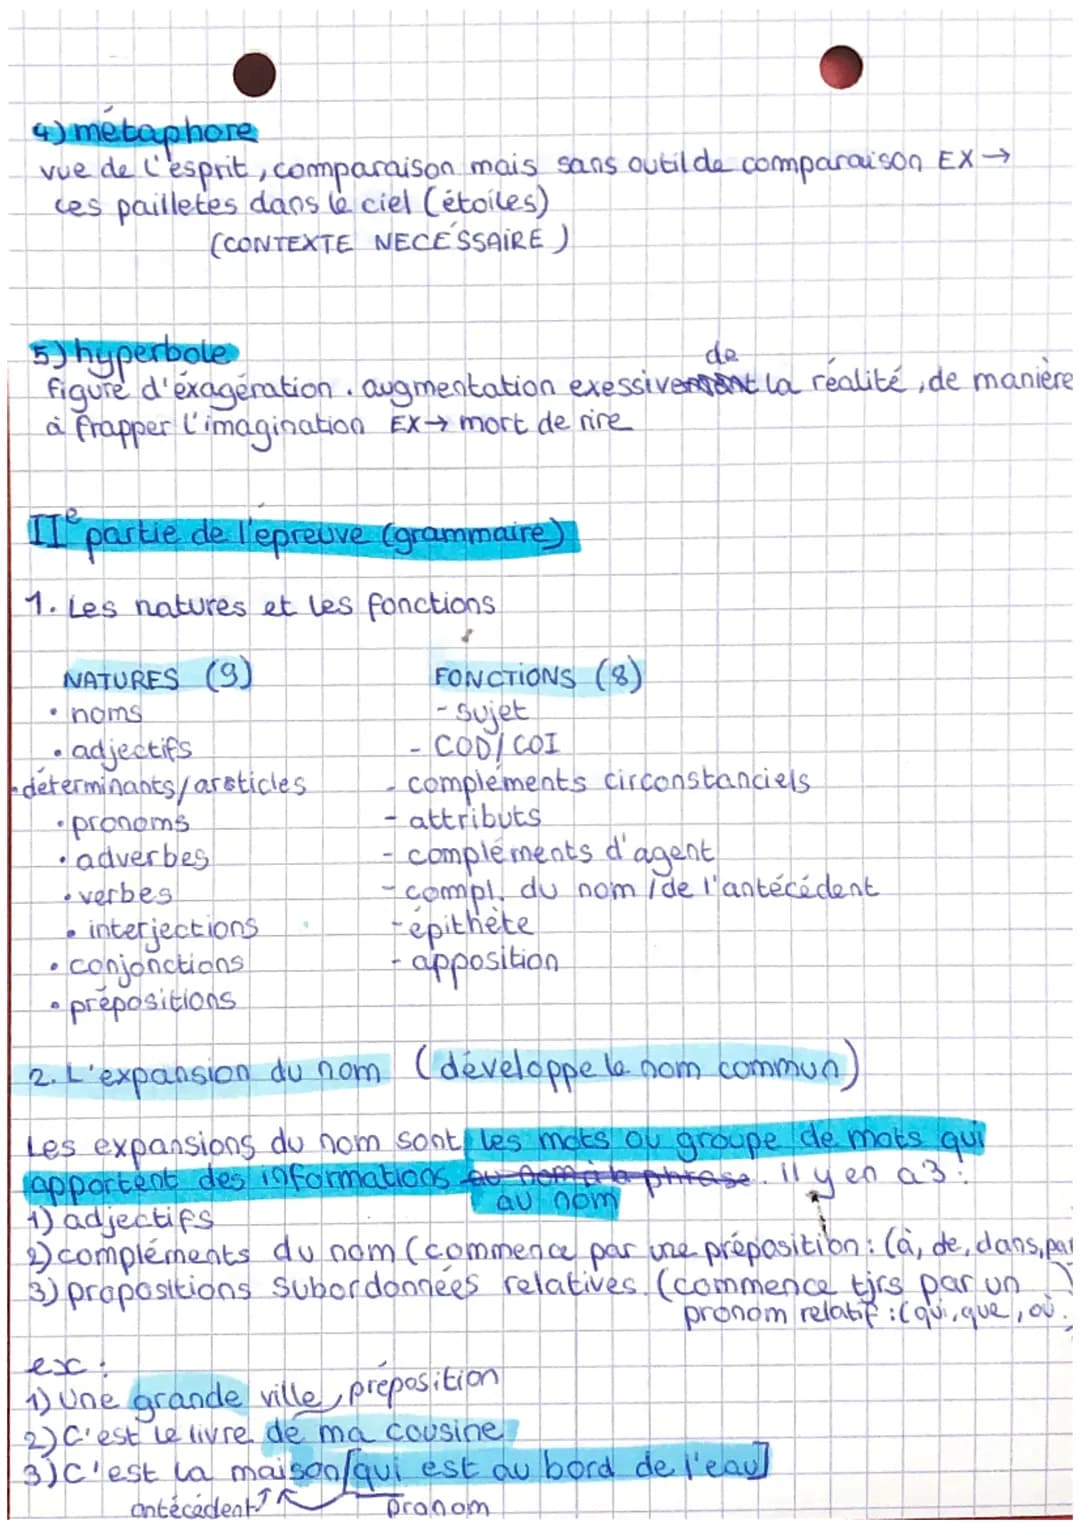 4) métaphore
vue de l'esprit, comparaison mais sans outil de comparaison EX →
ces pailletes dans le ciel (étoiles)
(CONTEXTE NECESSAIRE)
5) hyperbole
de
figure d'exagération. augmentation exessive la réalité, de manière
à frapper l'imagination EX → mort de rire
IIe partie de l'épreuve (grammaire)
1. Les natures et les fonctions
NATURES (9) FONCTIONS (8)
• noms - sujet
• adjectifs - COD/COI
• déterminants/articles - compléments circonstanciels
• pronoms - attributs
• adverbes - compléments d'agent
• verbes - compl. du nom / de l'antécédent
• interjections - épithète
• conjonctions - apposition
• prépositions
2. L'expansion du nom (développe le nom commun)
Les expansions du nom sont les mots ou groupe de mots qui
apportent des informations au nom à la phrase. il y en a 3 :
au nom
1) adjectifs
2) compléments du nom (commence par une préposition : (à, de, dans, par
3) propositions subordonnées relatives. (commence tjrs par un )
pronom relatif : (qui, que, où.
ex :
1) Une grande ville préposition
2) C'est le livre de ma cousine
3) C'est la maison [qui est au bord de l'eau]
antécédent pronom